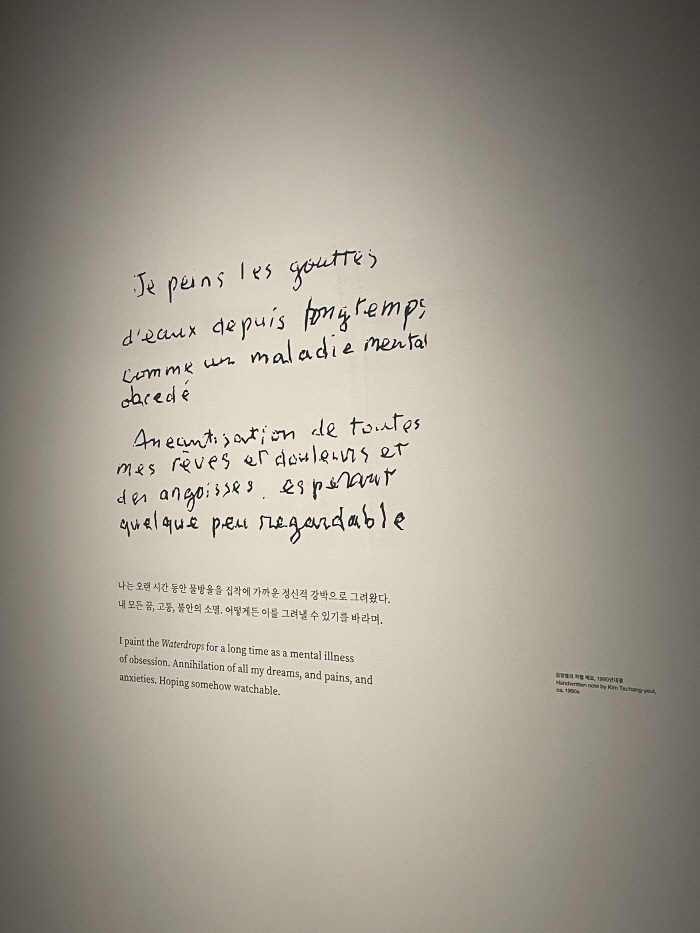 Je peins les gouttes
d'eaux depuis longtemps
comme un maladie mental
obcedé
Aneantisation de toutes
mes rêves et douleurs et
des angoisses. esperant
quelque peu regardable
나는 오랜 시간 동안 물방울을 집착에 가까운 정신적 강박으로 그려왔다.
내 모든 꿈, 고통, 불안의 소멸. 어떻게든 이를 그려낼 수 있기를 바라며.
I paint the Waterdrops for a long time as a mental illness
of obsession. Annihilation of all my dreams, and pains, and
anxieties. Hoping somehow watchable.
김창열의 자필 메모, 1990년대경
Handwritten note by Kim Tschang-yeul,
ca. 1990s